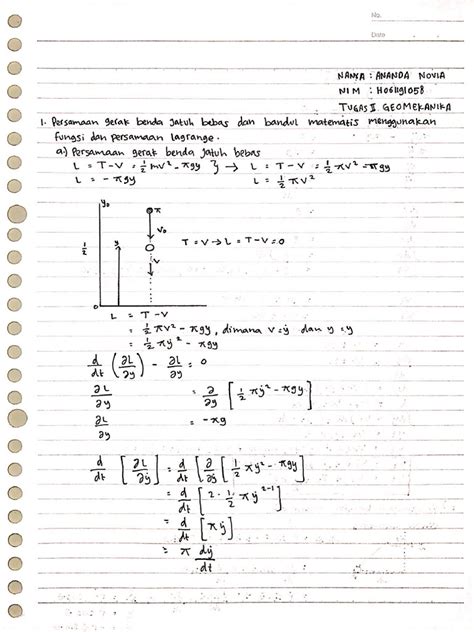 No.
Date
NAMA : ANANDA NOVIA
NIM : H061191058
TUGAS II GEOMEKANIKA
1. Persamaan gerak benda jatuh bebas dan bandul matematis menggunakan
fungsi dan persamaan lagrange.
a) Persamaan gerak benda jatuh bebas
L = T - V = 1/2 mv² - πgy } → L = T - V = 1/2 πv² - πgy
L = - πgy L = 1/2 πv²
y₀
π
v₀
1/2 y T = V → L = T - V = 0
v
0
L = T - V
= 1/2 πv² - πgy, dimana v = ẏ dan y = y
= 1/2 πẏ² - πgy
d/dt (∂L/∂ẏ) - ∂L/∂y = 0
∂L/∂y = ∂/∂y [1/2 πẏ² - πgy]
∂L/∂y = - πg
d/dt [∂L/∂ẏ] = d/dt [∂/∂ẏ [1/2 πẏ² - πgy]
= d/dt [2 · 1/2 πẏ²⁻¹]
= d/dt [πẏ]
= π dẏ/dt